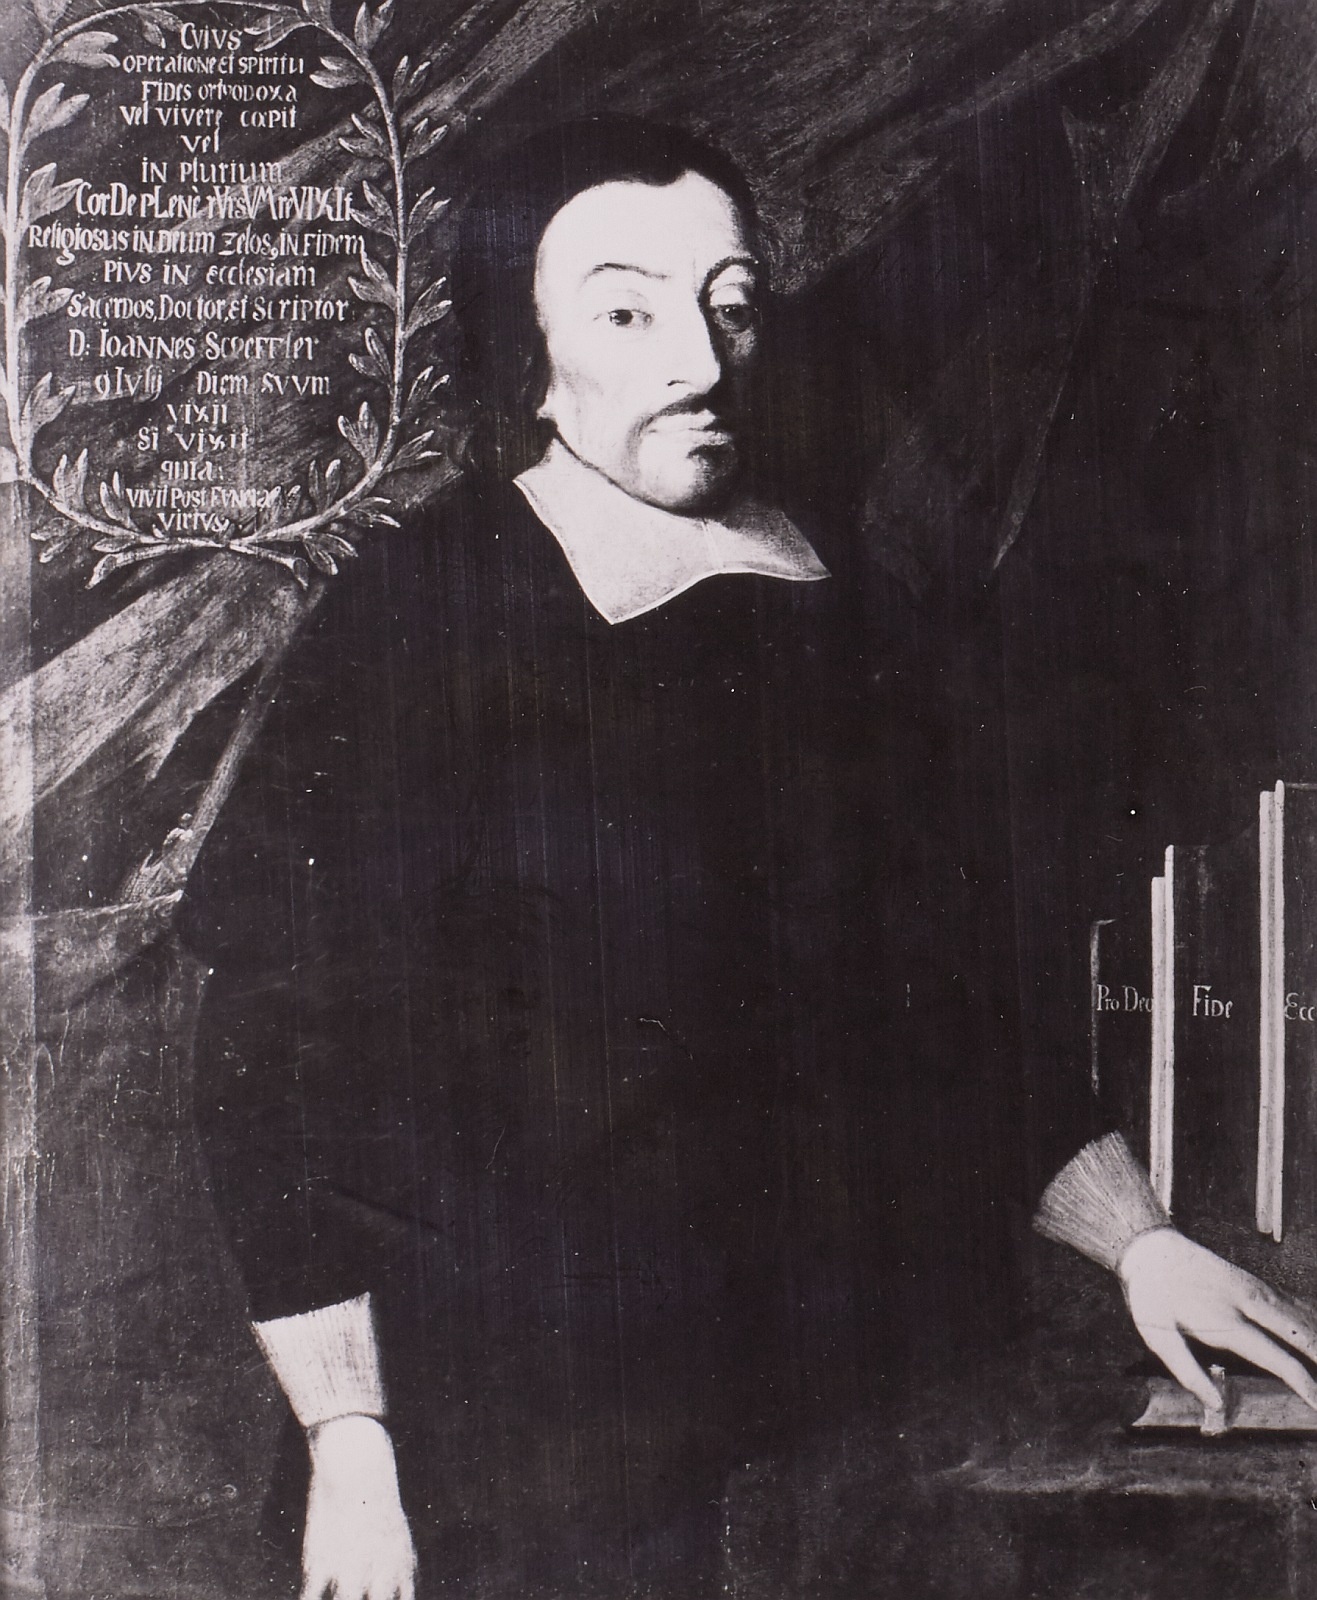 CVIVS
operatione et spiritu
FIDES ORTHODOXA
vel vivere cœpit
vel
IN plurium
CorDe pLenè rVrsVM reVIXIt
Religiosus IN Deum Zelos, IN FIDem
PIVS IN ecclesiam
Sacerdos, Doctor, et Scriptor
D: IOANNES Scheffler
9 Iulij Diem SVVM
VIXIt
SI VIXIt
quia
VIVIt Post FVNera
VIrtVs
Pro Deo
FIDe
Ecc